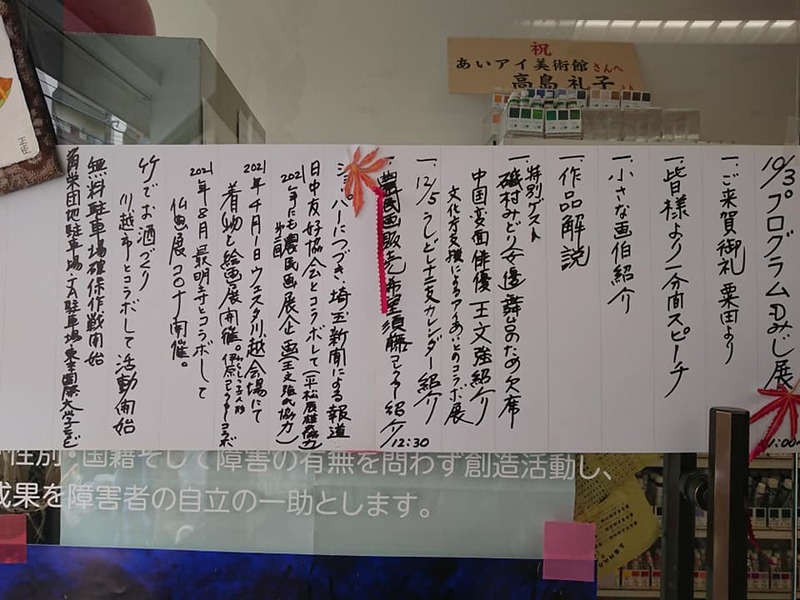 祝
あいアイ美術館さんへ
高島礼子より
10/3プログラムもみじ展
11:00〜
一、ご来賀御礼 粟田より
一、皆様より一分間スピーチ
一、小さな画伯紹介
一、作品解説
特別ゲスト
一、磯村みどり女優 舞台のため欠席
中国変面俳優 王文強紹介
文化庁支援によるアイあいとのコラボ展
一、12/5うしどしナニ支カレンダー紹介
一、農民画販売希望須藤コレクター紹介
12:30
シルバーにつづき、埼玉新聞による報道
日中友好協会とコラボして(平松辰雄協力)
2021年にも農民画展企画(王文強氏協力)
第二回
2021年4月1日ウェスタ川越会場にて
着物と絵画展開催。
2021年8月最明寺とコラボして
仏画展コロナ開催。
竹でお酒づくり
川越市とコラボして活動開始
無料駐車場確保作戦開始
角栄団地駐車場・JA駐車場・東京国際大学など
性別・国籍そして障害の有無を問わず創造活動し、
成果を障害者の自立の一助とします。